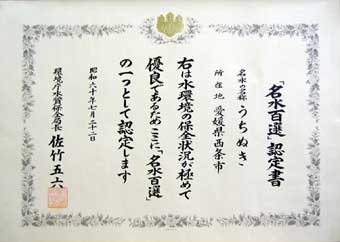 「名水百選」認定書
名水の名称 うちぬき
所在地 愛媛県西条市
右は水環境の保全状況が極めて
優良であるためここに「名水百選」
の一つとして認定します
昭和六十年七月二十二日
環境庁水質保全局長 佐竹五六